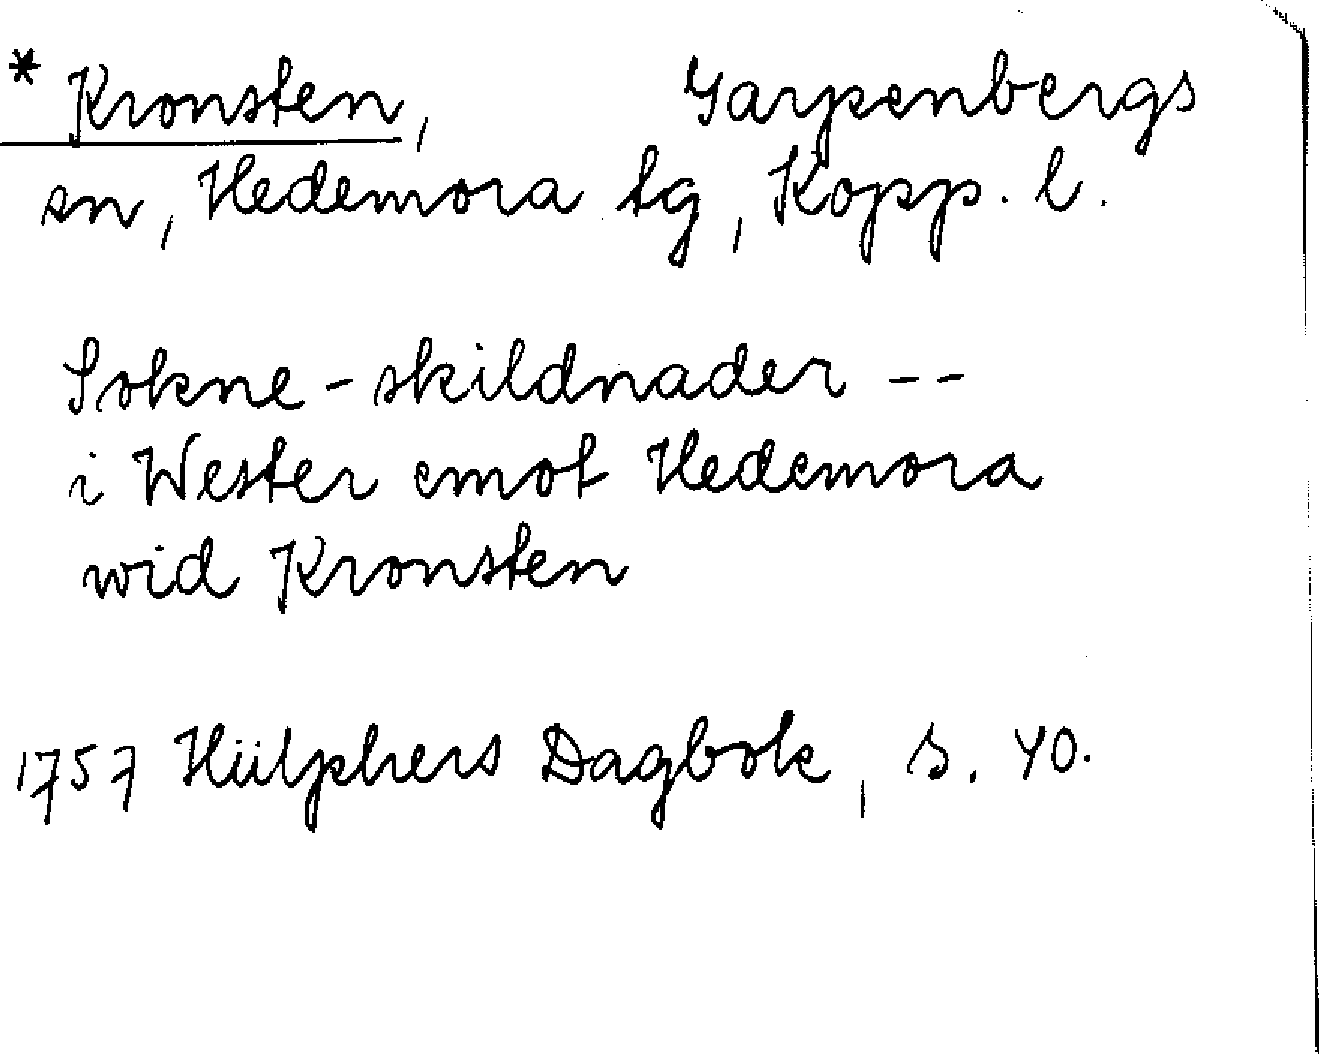 * Kronsten, Garpenbergs
sn, Hedemora tg, Kopp. l.
Sokne-skildnader --
i Wester emot Hedemora
wid Kronsten
1757 Hülphers Dagbok, s. 40.